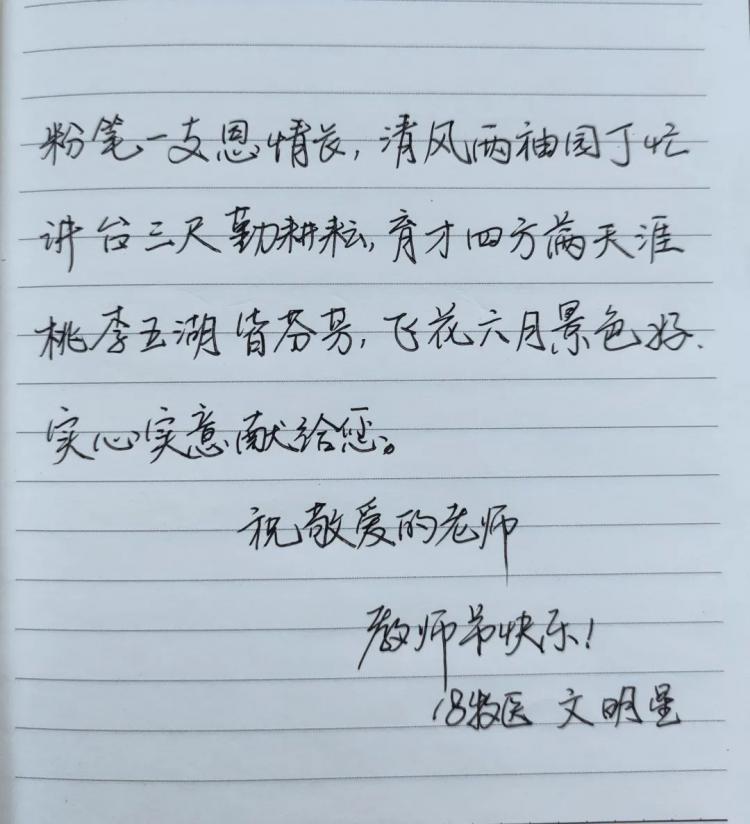 粉笔一支恩情长,清风两袖园丁忙
讲台三尺勤耕耘,育才四方满天涯
桃李五湖皆芬芳,飞花六月景色好.
实心实意献给您。
祝敬爱的老师
教师节快乐!
18牧医 文明星